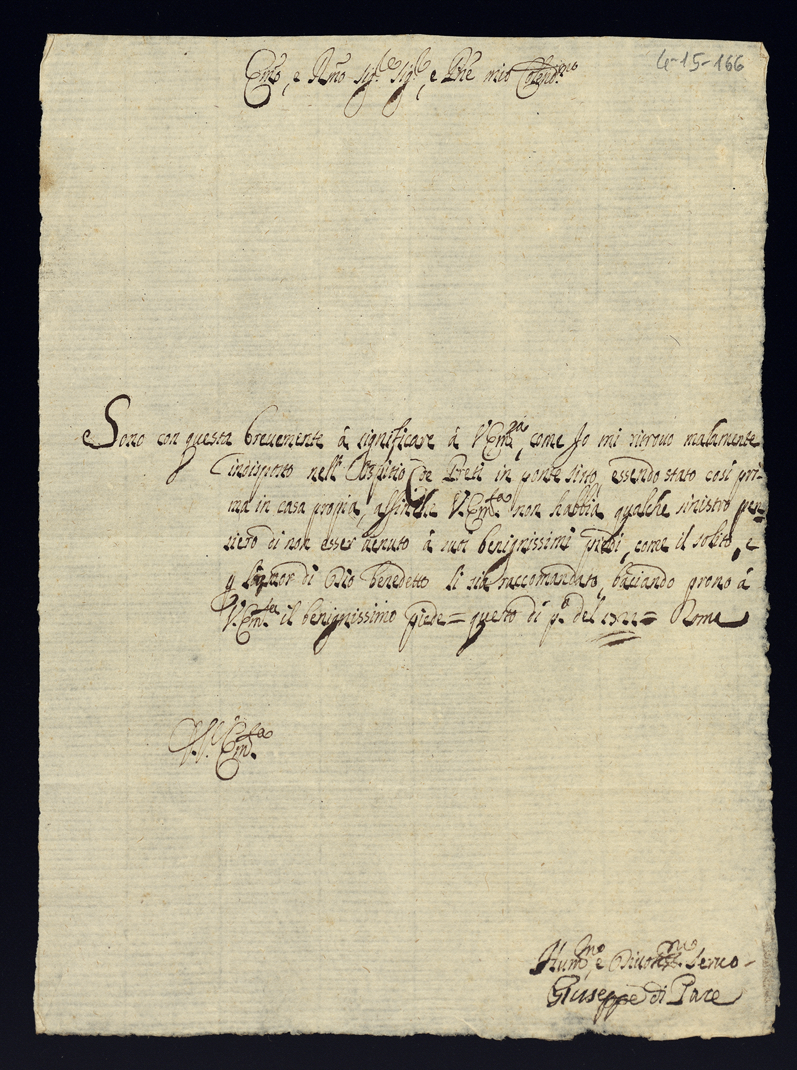 4-15-166
Em̃o, e Rm̃o Sig.r Sig.r, e Pñe mio Colend.mo
Sono con questa brevemente á significare á V. Em̃.za, come Jo mi ritrovo malamente
indisposto nell' Ospitio de Preti in ponte sisto, essendo stato così pri-
ma in casa propia, affinche V. Em̃.za non habbia qualche sinistro pen-
siero di non esser venuto á suoi benignissimi piedi, come il solito, e
p l'amor di Dio benedetto li sia raccomandato, baciando prono á
V. Em̃.za il benignissimo piede = questo di p.o del = Roma
V. Em̃.za
Hum.mo, e Divotiss.mo Servo
Giuseppe di Pace